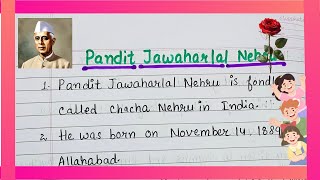 Pandit Jawaharlal Nehru
1. Pandit Jawaharlal Nehru is fondl
called chacha Nehru in India.
2. He was born on November 14, 1889
Allahabad.